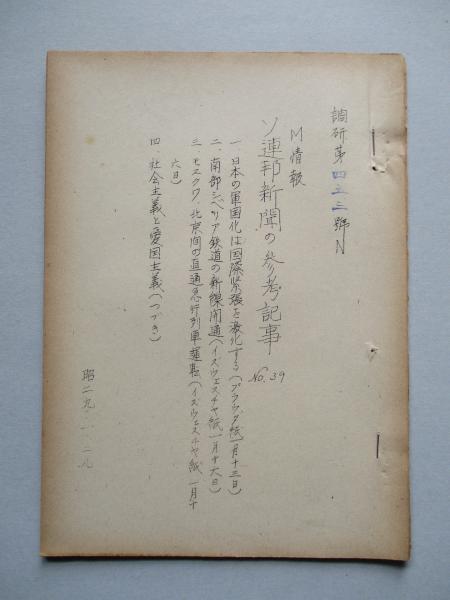 調研第四三三號N
M情報
ソ連邦新聞の参考記事 No.39
一、日本の軍国化は国際緊張を激化する(プラウダ紙一月十三日)
二、南部シベリア鉄道の新線開通(イズヴェスチヤ紙一月十六日)
三、モスクワ、北京間の直通急行列車運転(イズヴェスチヤ紙一月十
六日)
四、社会主義と愛国主義(つづき)
昭二九、一、二八